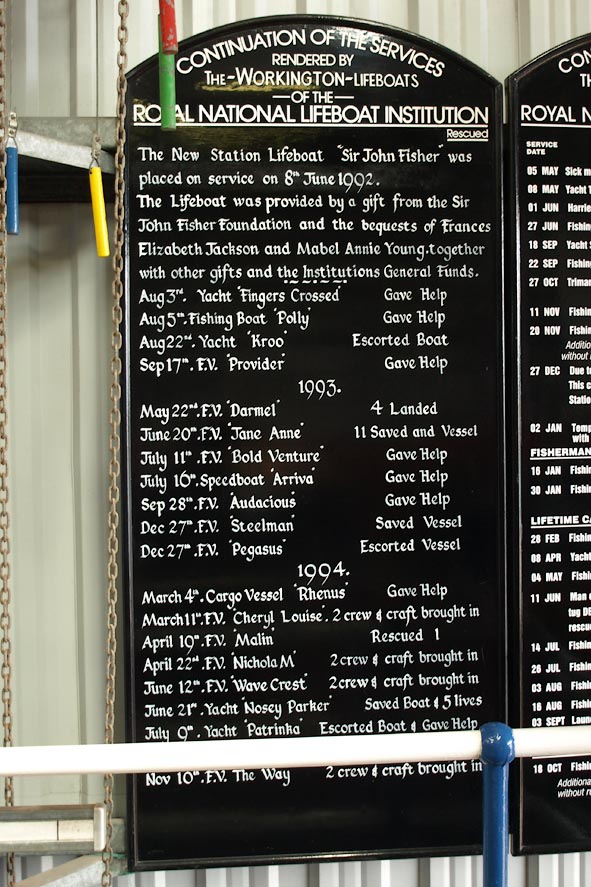 CONTINUATION OF THE SERVICES
RENDERED BY
THE-WORKINGTON-LIFEBOATS
—OF THE—
ROYAL NATIONAL LIFEBOAT INSTITUTION
Rescued
The New Station Lifeboat "Sir John Fisher" was
placed on service on 8th June 1992.
The Lifeboat was provided by a gift from the Sir
John Fisher Foundation and the bequests of Frances
Elizabeth Jackson and Mabel Annie Young.together
with other gifts and the Institutions General Funds.
Aug 3rd. Yacht "Fingers Crossed" Gave Help
Aug 5th. Fishing Boat "Polly" Gave Help
Aug 22nd. Yacht "Kroo" Escorted Boat
Sep 17th. F.V. "Provider" Gave Help
1993.
May 22nd. F.V. "Darmel" 4 Landed
June 20th. F.V. "Jane Anne" 11 Saved and Vessel
July 11th. F.V. "Bold Venture" Gave Help
July 16th. Speedboat "Arriva" Gave Help
Sep 28th. F.V. "Audacious" Gave Help
Dec 27th. F.V. "Steelman" Saved Vessel
Dec 27th. F.V. "Pegasus" Escorted Vessel
1994.
March 4th. Cargo Vessel "Rhenus" Gave Help
March 11th. F.V. "Cheryl Louise". 2 crew & craft brought in
April 19th. F.V. "Malin" Rescued 1
April 22nd. F.V. "Nichola M" 2 crew & craft brought in
June 12th. F.V. "Wave Crest" 2 crew & craft brought in
June 21st. Yacht "Nosey Parker" Saved Boat & 5 lives
July 9th. Yacht "Patrinka" Escorted Boat & Gave Help
Nov 10th. F.V. The Way 2 crew & craft brought in
CON
TH
ROYAL N
SERVICE
DATE
05 MAY Sick m
08 MAY Yacht
01 JUN Harrie
27 JUN Fishin
18 SEP Yacht
22 SEP Fishin
27 OCT Trimar
11 NOV Fishin
20 NOV Fishin
Additio
without
27 DEC Due t
This c
Statio
02 JAN Temp
with
FISHERMAN
16 JAN Fishi
30 JAN Fishi
LIFETIME CA
28 FEB Fishi
08 APR Yacht
04 MAY Fishi
11 JUN Man o
tug DE
rescue
14 JUL Fishin
26 JUL Fishi
03 AUG Fishi
16 AUG Fishi
03 SEPT Laun
18 OCT Fishin
Additiona
without r